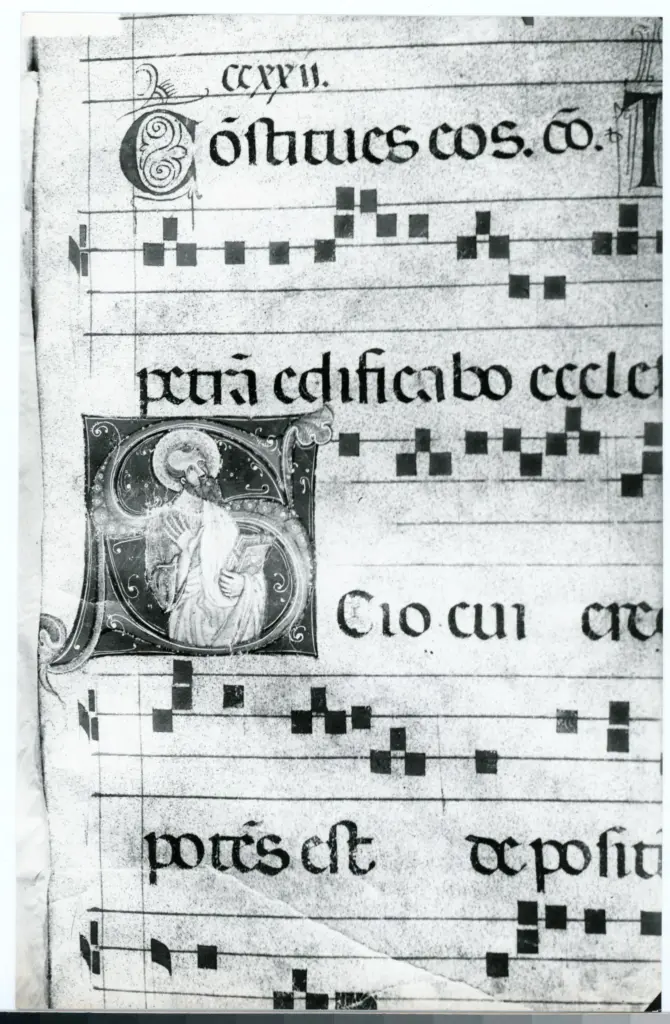 ccxxii.
Cōstitues eos. cō. T
petrā edificabo eccles
SCio cui cre
potēs est depositū